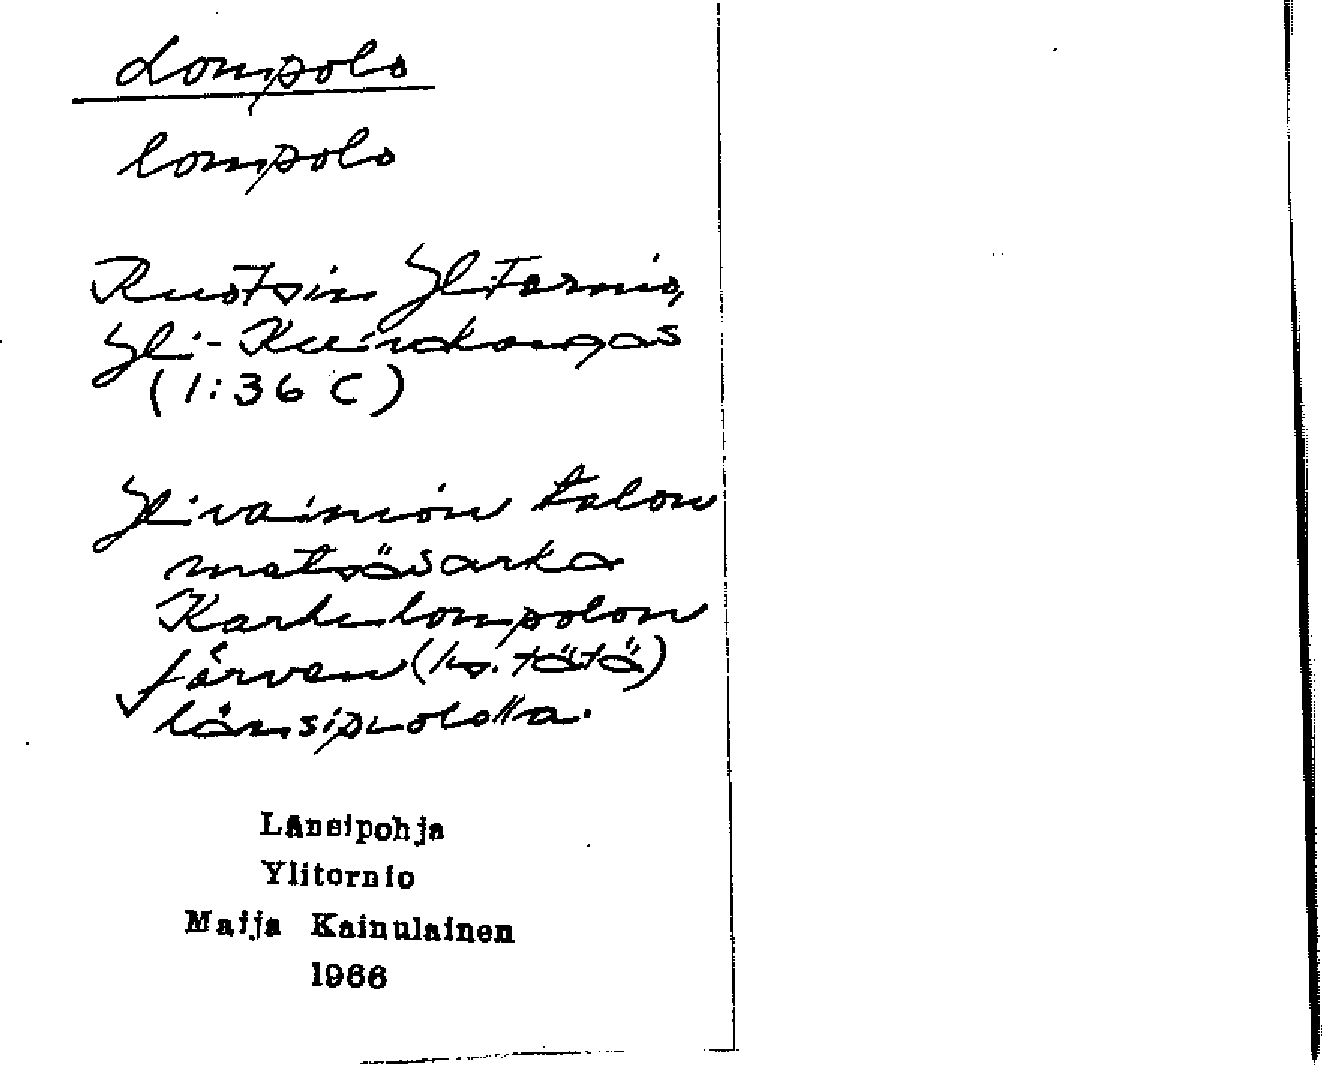 Lompolo
lompolo
Ruotsin Ylitornio,
Yli-Kuinkangas
(1:36 C)
Ylivainion talon
metsäsarka
Karhulompolon
järven (ks. tätä)
länsipuolella.
Länsipohja
Ylitornio
Maija Kainulainen
1966